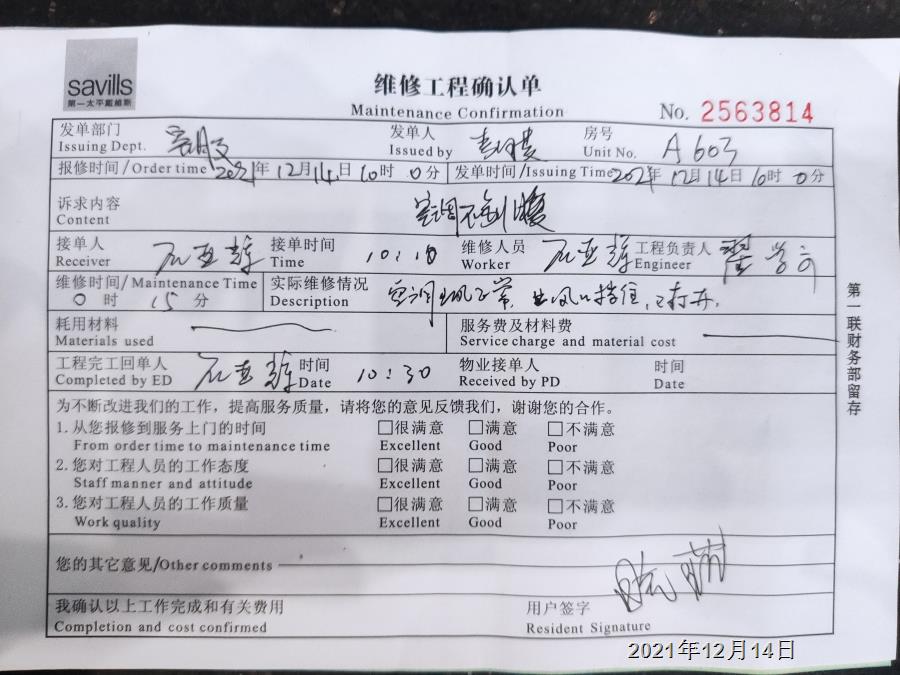 savills
第一太平戴维斯
维修工程确认单
Maintenance Confirmation
No. 2563814
发单部门 发单人 房号
Issuing Dept. 客服 Issued by Unit No. A603
报修时间/Order time 2021年12月14日10时0分 发单时间/Issuing Time 2021年12月14日10时0分
诉求内容
Content 空调不制暖
接单人 石亚辉 接单时间 10:10 维修人员 石亚辉 工程负责人
Receiver Time Worker Engineer
维修时间/Maintenance Time 实际维修情况
0时15分 Description 空调出风正常,出风口挡住,已打开。
耗用材料 服务费及材料费
Materials used Service charge and material cost
工程完工回单人 石亚辉 时间 10:30 物业接单人 时间
Completed by ED Date Received by PD Date
为不断改进我们的工作，提高服务质量，请将您的意见反馈我们，谢谢您的合作。
1.从您报修到服务上门的时间 □很满意 □满意 □不满意
From order time to maintenance time Excellent Good Poor
2.您对工程人员的工作态度 □很满意 □满意 □不满意
Staff manner and attitude Excellent Good Poor
3.您对工程人员的工作质量 □很满意 □满意 □不满意
Work quality Excellent Good Poor
您的其它意见/Other comments
我确认以上工作完成和有关费用 用户签字
Completion and cost confirmed Resident Signature
第一联财务部留存
2021年12月14日